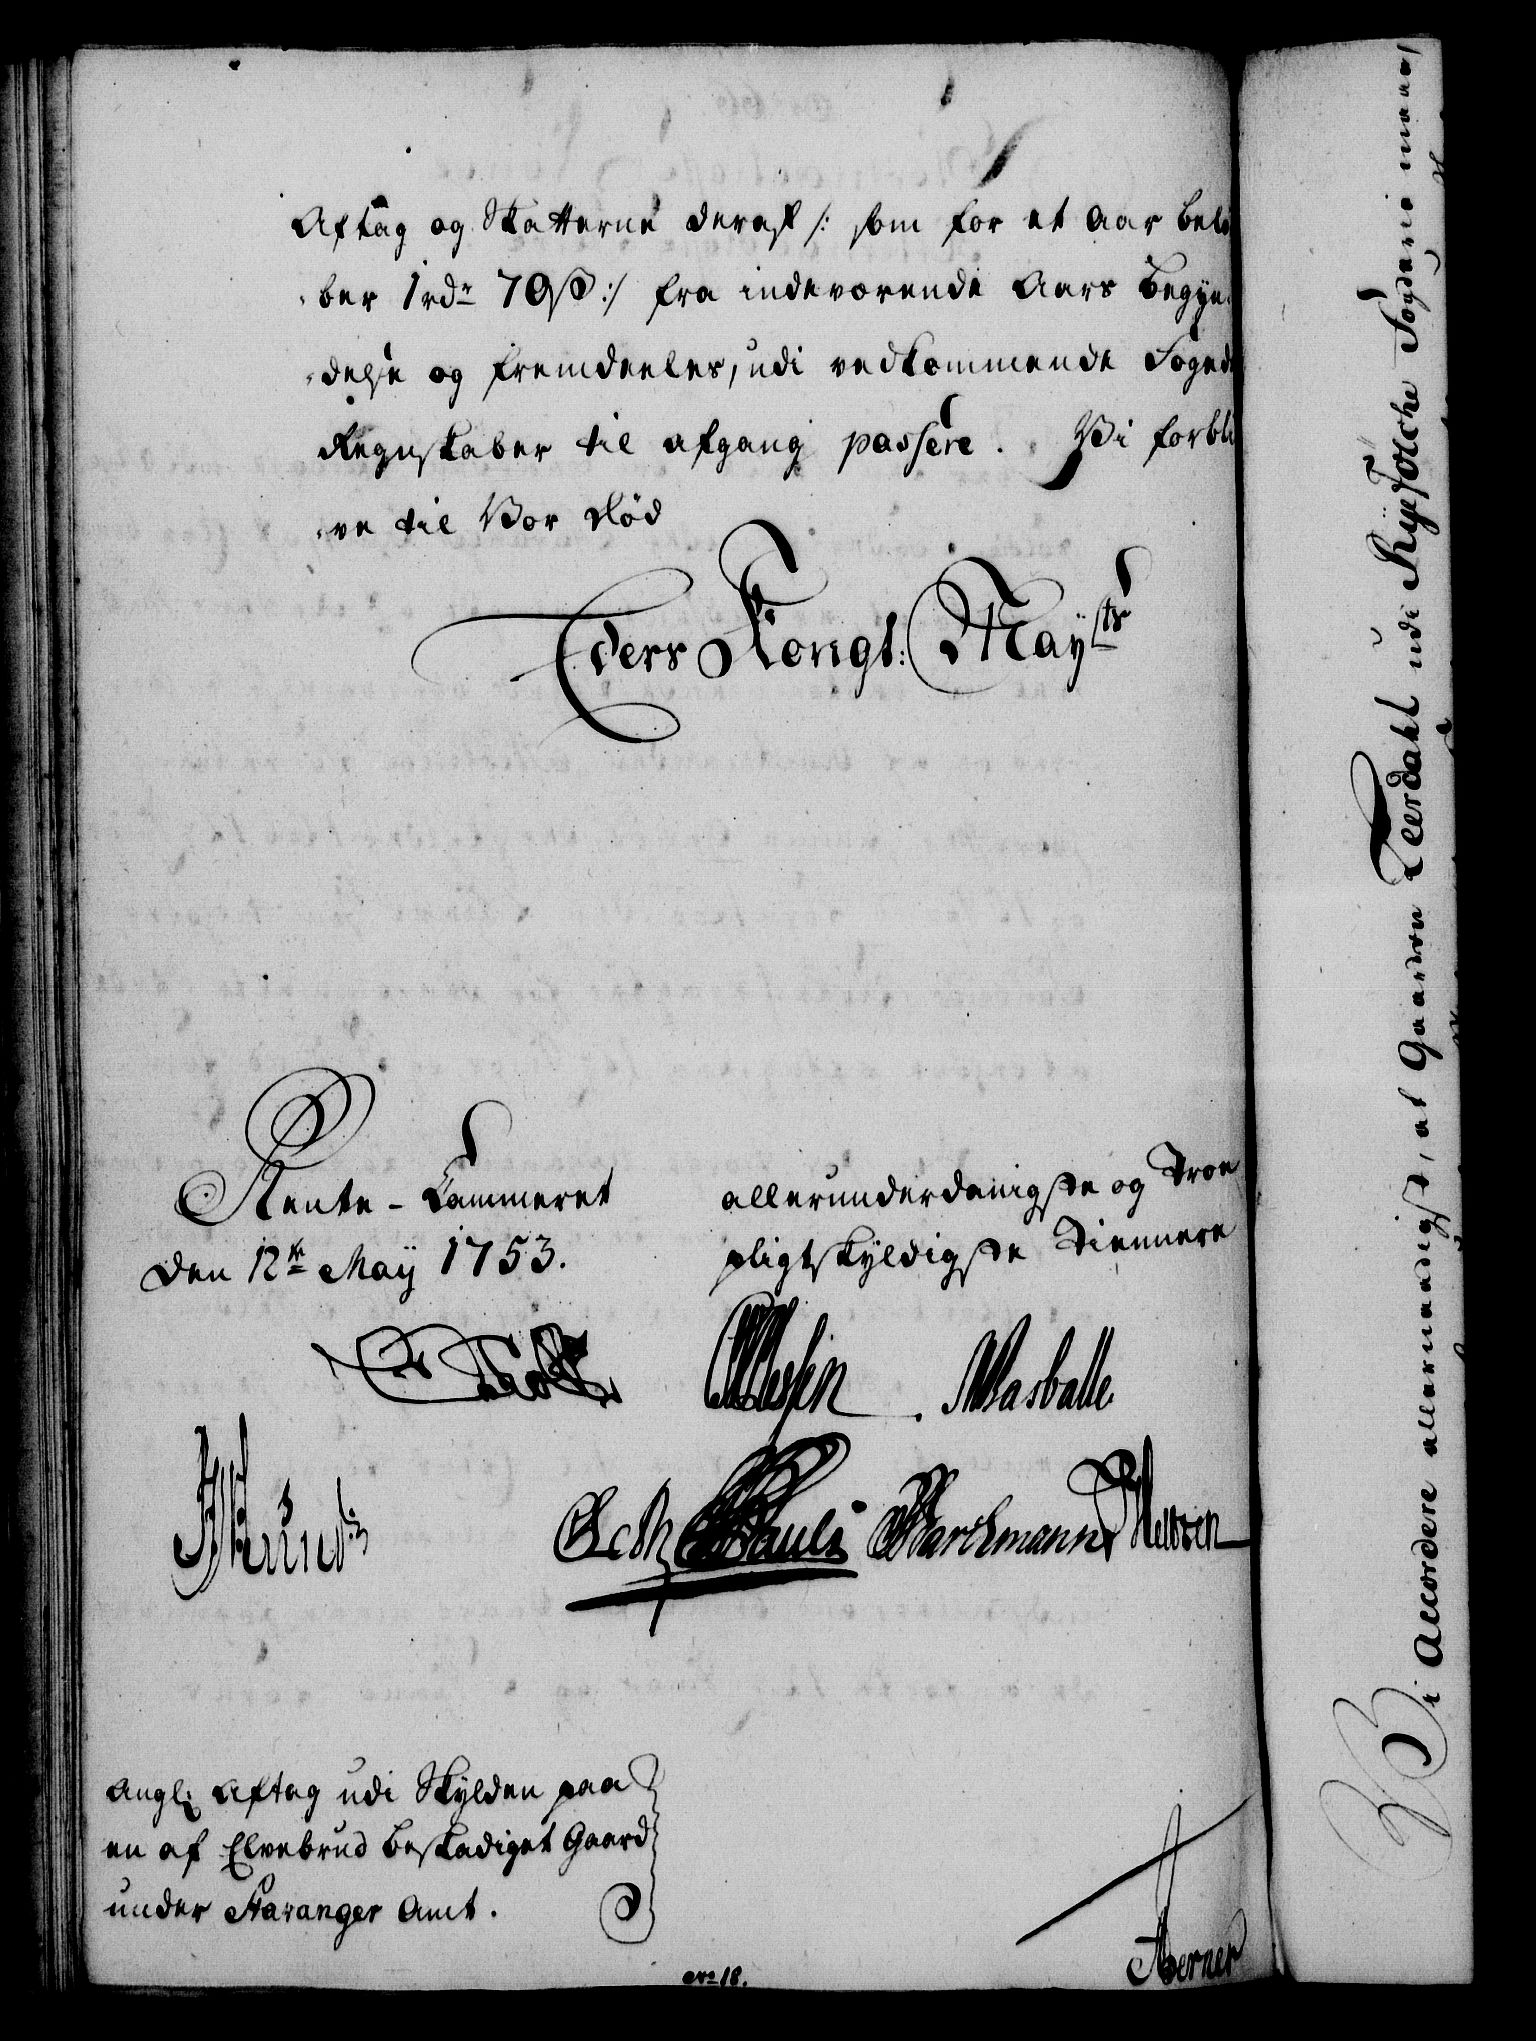 Aftag og Skatterne deraf /: som for et Aar belø
-ber 1 rdr 70 ß :/ fra indeværende Aars Begyn
-delse og fremdeeles, udi vedkommende Foged
Regnskaber til afgang passere. Vi forbli
-ve til Vor Død
Eders Kongl: Mayts
Rente-Cammeret
den 12te Maÿ 1753.
allerunderdanigste og Troe
pligtskÿldigste Tiennere
Wasballe
Pauli Barchmann
Angl: Aftag udi Skÿlden paa
en af Elvebrud beskadiget Gaard
under Stavanger Amt.
No 18.
Vi Accordere allernaadigst, at Gaarden Teerdahl udi Ryefölche Fogderie maae